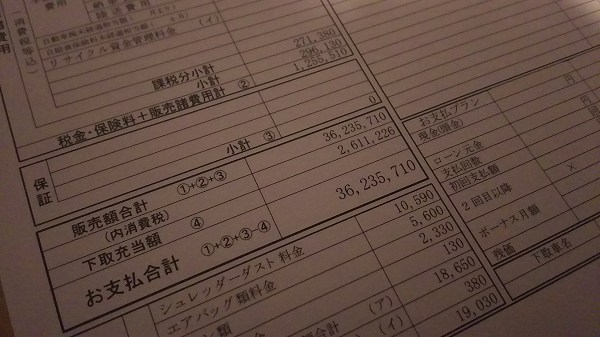 消費税等込
費用
リサイクル資金管理料 (イ)
271,380
課税分小計 296,130
小計 1,255,510
税金・保険料+販売諸費用計 ②
0
保証
小計 ③
販売額合計 ①+②+③ 36,235,710
(内消費税) 2,611,226
下取充当額 ④
お支払合計 ①+②+③-④ 36,235,710
シュレッダーダスト料金 10,590
エアバッグ類料金 5,600
2,330
130
(ア) 18,650
(イ) 380
19,030
お支払プラン
現金(頭金) 円
ローン元金 円
支払回数
初回支払額
2回目以降 ×
ボーナス月額
残価
下取車名